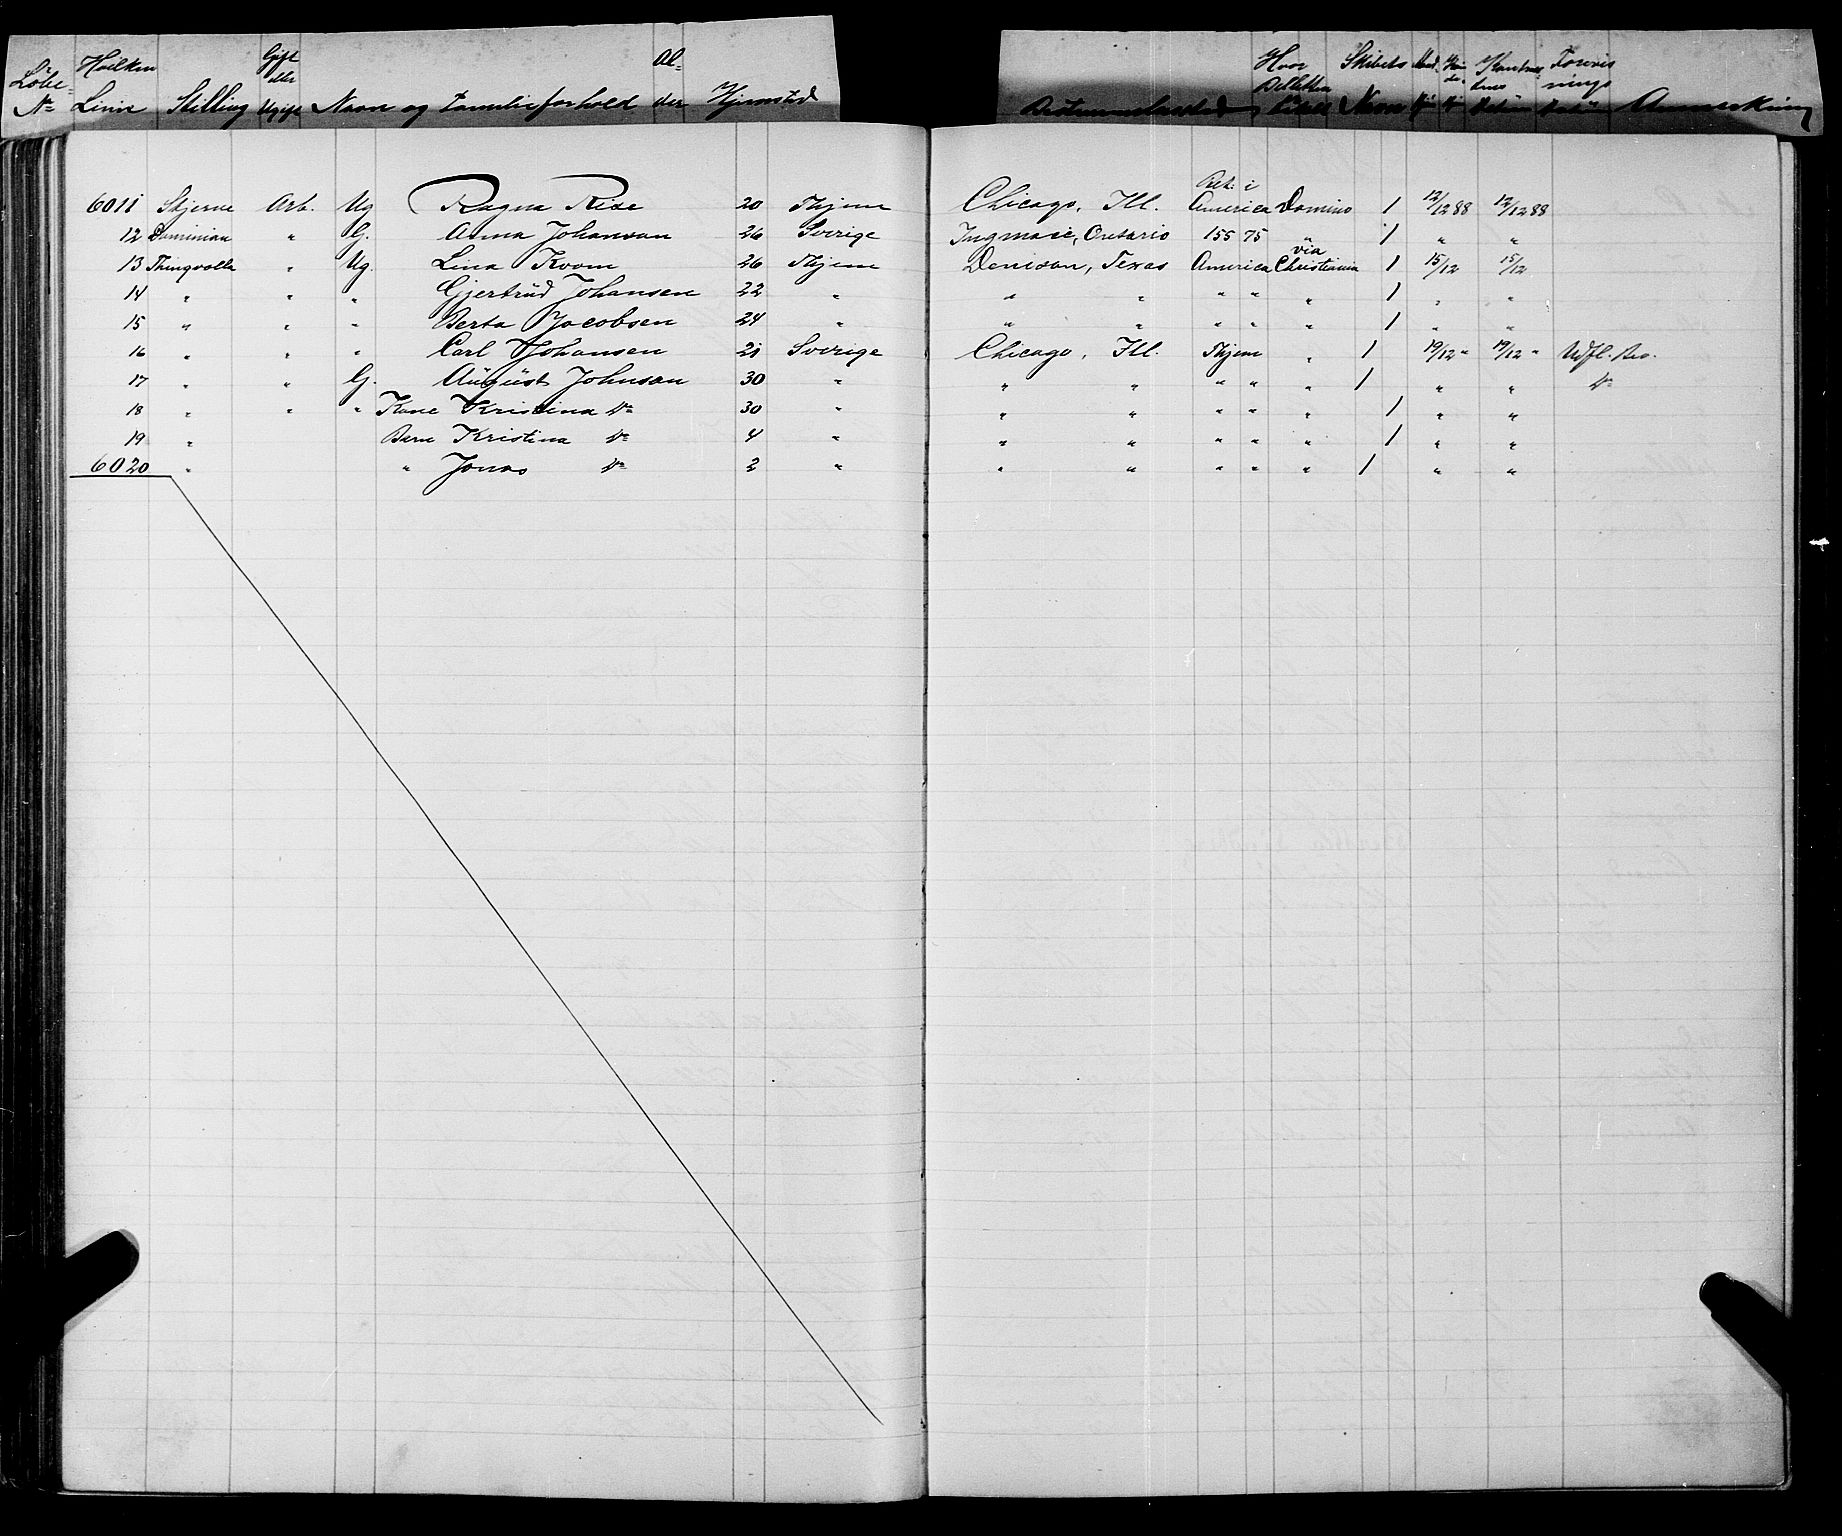 Löbe- Nr. Hvilken Linie Stilling Gift eller Ugift Navn og Familieforhold Al- der Hjemsted Bestemmelsessted Hvor Billetten Löst Skibets Navn Anmærkning
6011 Stjerne Arb. Ug Ragna Rise 20 Thjem Chicago, Ill. Bet. i America Domino 1 12/12 88 12/12 88
12 Dominian " G. Anna Johanson 26 Sverige Ontario 155 75 " 1 " "
13 Thingvalla " Ug. Lina Kvom 26 Thjem Denison, Texas America via Christiania 1 15/12 15/12
14 " " " Gjertrud Johansen 22 " " " " " " 1 " "
15 " " " Berta Jacobsen 24 " " " " " " 1 " "
16 " " " Carl Johansen 21 Sverige Chicago, Ill. Thjem " 1 19/12 " 19/12 " Udfl. Bev.
17 " " G. August Johnson 30 " " " " " " 1 " " Do
18 " " " Kone Kristina Do 30 " " " " " " 1 " "
19 " Barn Kristina Do 4 " " " " " " 1 " "
6020 " " Jonas Do 2 " " " " " " 1 " "